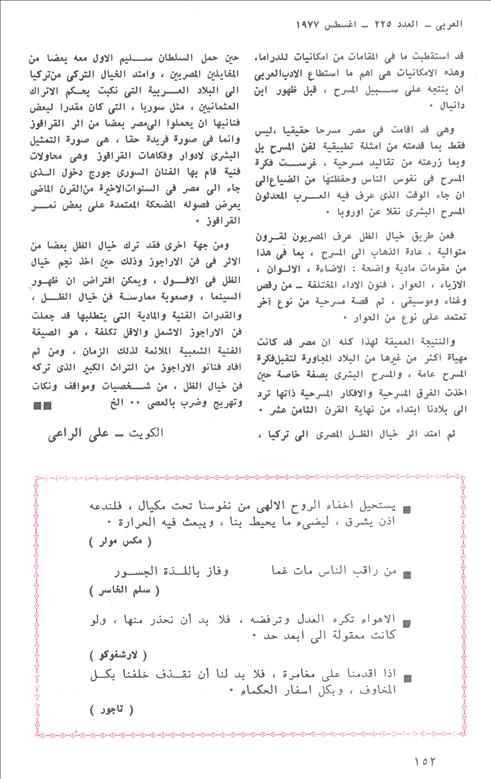 العربي – العدد ٢٢٥ – اغسطس ١٩٧٧
قد استقطبت ما في المقامات من امكانيات للدراما،
وهذه الامكانيات هى اهم ما استطاع الادب العربى
ان ينتجه على سبيل المسرح ، قبل ظهور ابن
دانيال ٠
وهى قد اقامت فى مصر مسرحا حقيقيا ،ليس
فقط بما قدمته من امثلة تطبيقية لفن المسرح بل
وبما زرعته من تقاليد مسرحية ، غرست فكرة
المسرح فى نفوس الناس وحفظتها من الضياع الى
ان جاء الوقت الذى عرف فيه العرب المحدثون
المسرح البشرى نقلا عن اوروبا ٠
فعن طريق خيال الظل عرف المصريون لقرون
متوالية ، عادة الذهاب الى المسرح ، بما فى هذا
من مقومات مادية واضحة : الاضاءة ، الالوان ،
الازياء ، الحوار ، فنون الاداء المختلفة – من رقص
وغناء وموسيقى ، ثم قصة مسرحية من نوع آخر
تعتمد على نوع من الحوار ٠
والنتيجة العميقة لهذا كله ان مصر قد كانت
مهياة اكثر من غيرها من البلاد المجاورة لتقبل فكرة
المسرح عامة ، والمسرح البشرى بصفة خاصة حين
اخذت الفرق المسرحية والافكار المسرحية ذاتها ترد
الى بلادنا ابتداء من نهاية القرن الثامن عشر ٠
ثم امتد اثر خيال الظل المصرى الى تركيا ،
حين حمل السلطان سليم الاول معه بعضا من
المخايلين المصريين ، وامتد الخيال التركى من تركيا
الى البلاد العربية التى نكبت بحكم الاتراك
العثمانيين ، مثل سوريا ، التى كان مقدرا لبعض
فنانيها ان يعملوا الى مصر بعضا من اثر القراقوز
وانما فى صورة فريدة حقا ، هى صورة التمثيل
البشرى لادوار وفكاهات القراقوز وهى محاولات
فنية قام بها الفنان السورى جورج دخول الذى
جاء الى مصر فى السنوات الاخيرة من القرن الماضى
يعرض فصوله المضحكة المعتمدة على بعض نمر
القراقوز ٠
ومن جهة اخرى فقد ترك خيال الظل بعضا من
الاثر فى فن الاراجوز وذلك حين اخذ نجم خيال
الظل فى الافول ، ويمكن افتراض ان ظهور
السينما ، وصعوبة ممارسة فن خيال الظل ،
والقدرات الفنية والمادية التى يتطلبها قد جعلت
فن الاراجوز الاشمل والاقل تكلفة ، هو الصيغة
الفنية الشعبية الملائمة لذلك الزمان ، ومن ثم
افاد فنانو الاراجوز من التراث الكبير الذى تركه
فن خيال الظل ، من شخصيات ومواقف ونكات
وتهريج وضرب بالعصى ٠٠ الخ
الكويت – على الراعى
يستحيل اخفاء الروح الالهى من نفوسنا تحت مكيال ، فلندعه
اذن يشرق ، ليضىء ما يحيط بنا ، ويبعث فيه الحرارة ٠
( مكس مولر )
من راقب الناس مات غما وفاز باللذة الجسور
( سلم الخاسر )
الاهواء تكره العدل وترفضه ، فلا بد أن نحذر منها ، ولو
كانت معقولة الى ابعد حد ٠
( لارشفوكو )
اذا اقدمنا على مغامرة ، فلا بد لنا أن نقذف خلفنا بكل
المخاوف ، وبكل اسفار الحكماء ٠
( تاجور )
١٥٢